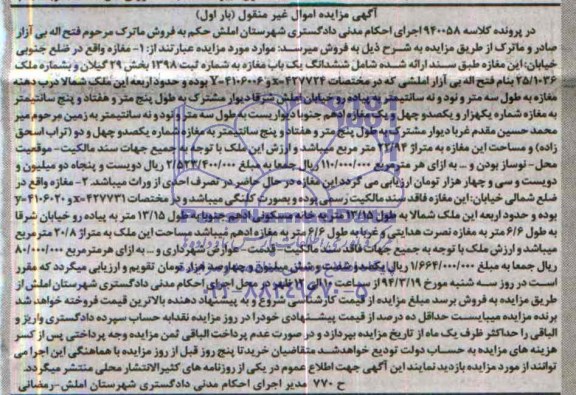 آگهی مزایده اموال غیر منقول (بار اول)
در پرونده کلاسه ۹۴۰۰۵۸ اجرای احکام مدنی دادگستری شهرستان املش حکم به فروش ماترک مرحوم فتح اله بی آزار
صادر و ماترک از طریق مزایده به شرح ذیل به فروش میرسد: موارد مورد مزایده عبارتند از: ۱- مغازه واقع در ضلع جنوبی
خیابان: این مغازه طبق سند ارائه شده شامل ششدانگ یک باب مغازه به شماره ثبت ۱۳۹۸ بخش ۲۹ گیلان و بشماره ملک
۲۵/۱۰۳۶ بنام فتح اله بی آزار املشی که در مختصات x=۴۲۷۷۲۴ و Y=۴۱۰۶۰۰۶ بوده و حدود اربعه این ملک شمالا درب دهنه
مغازه به طول سه متر و نود و نه سانتیمتر به پیاده رو خیابان املش شرقا دیوار مشترک به طول پنج متر و هفتاد و پنج سانتیمتر
به مغازه شماره یکهزار و یکصدو چهل و یک مغازه ادهم جنوبا دیواریست به طول سه متر و نود و نه سانتیمتر به زمین مرحوم میر
محمد حسین مقدم غربا دیوار مشترک به طول پنج متر و هفتاد و پنج سانتیمتر به مغازه شماره یکصدو چهل و دو (تراب اسحق
زاده) و مساحت این مغازه به متراژ ۲۲/۹۴ متر مربع میباشد و ارزش این ملک با توجه به جمیع جهات سند مالکیت - موقعیت
محل - نوساز بودن و ... به ازای هر مترمربع ۱۱۰/۰۰۰/۰۰۰ ریال جمعا به مبلغ ۲/۵۲۳/۴۰۰/۰۰۰ ریال دویست و پنجاه دو میلیون و
دویست و سی و چهار هزار تومان ارزیابی می گردد این مغازه در حال حاضر در تصرف احدی از وراث میباشد. ۲- مغازه واقع در
ضلع شمالی خیابان: این مغازه فاقد سند مالکیت رسمی بوده و بصورت کلنگی میباشد و در مختصات x=۴۲۷۷۳۱ و y=۴۱۰۶۰۲۰
بوده و حدود اربعه این ملک شمالا به طول ۱۳/۱۵ متر به خانه مسکونی ادهم جنوبا به طول ۱۳/۱۵ متر به پیاده رو خیابان شرقا
به طول ۶/۶ متر به مغازه نصرت هدایتی و غربا به طول ۶/۶ متر به مغازه ادهم میباشد مساحت این ملک به متراژ ۲۰/۸ متر مربع
میباشد و ارزش ملک با توجه به جمیع جهات فاقد سند مالکیت عوارض شهرداری و ... به ازای هر مترمربع ۸۰/۰۰۰/۰۰۰
ریال جمعا به مبلغ ۱/۶۶۴/۰۰۰/۰۰۰ ریال یکصد و شصت و شش میلیون و چهارصد هزار تومان تقویم و ارزیابی میگردد که مقرر
است در روز سه شنبه مورخ ۹۴/۳/۱۹ از ساعت الی ۱۲ ظهر در محل اجرای احکام مدنی دادگستری شهرستان املش از
طریق مزایده به فروش برسد مبلغ مزایده از قیمت کارشناسی شروع و به پیشنهاد دهنده بالاترین قیمت فروخته خواهد شد
برنده مزایده میبایست حداقل ده درصد از قیمت پیشنهادی خودرا در روز مزایده نقدا به حساب سپرده دادگستری واریز و
الباقی را حداکثر ظرف یک ماه از تاریخ مزایده بپردازد و در صورت عدم پرداخت الباقی ثمن مزایده وجه پرداختی پس از کسر
هزینه های مزایده به حساب دولت تودیع خواهد شد متقاضیان خرید تا پنج روز قبل از روز مزایده با هماهنگی این اجرا می
توانند از مورد مزایده بازدید نمایند این آگهی جهت اطلاع عموم در یکی از روزنامه های کثیرالانتشار محلی منتشر میگردد.
ح ۷۷۰ مدیر اجرای احکام مدنی دادگستری شهرستان املش - رمضانی